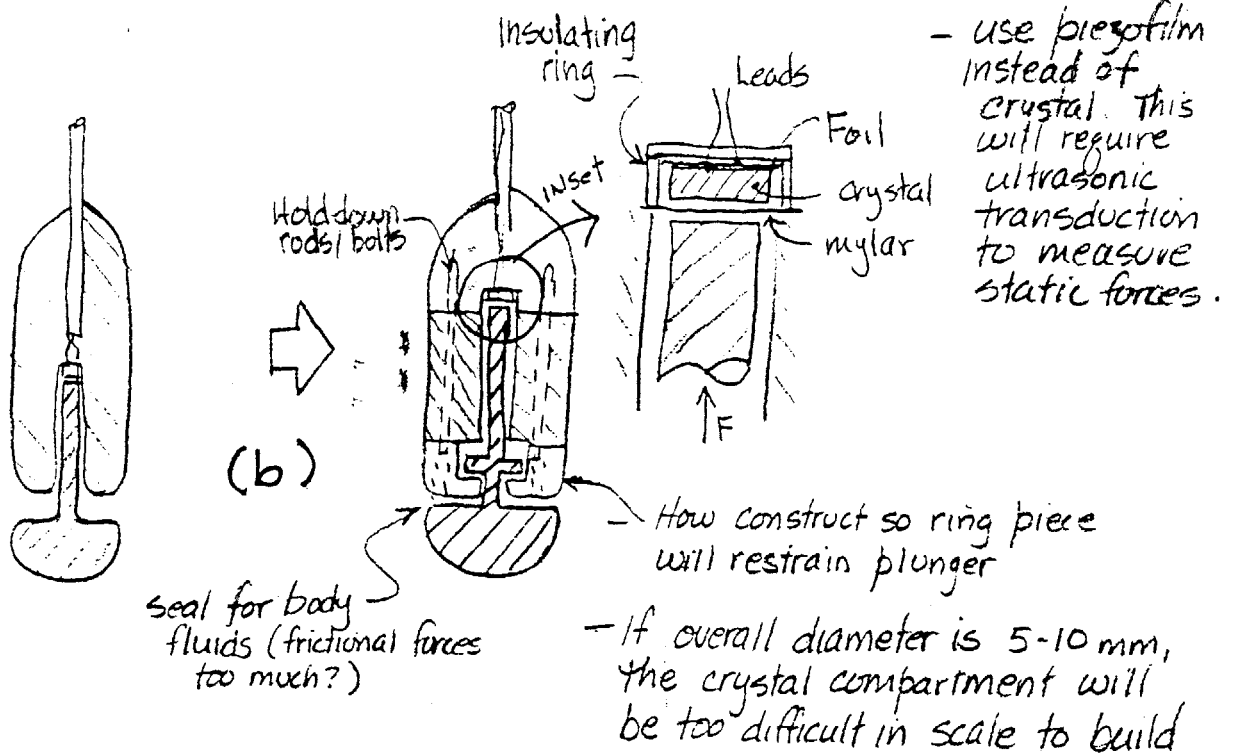 Insulating
ring –
Leads
Foil
crystal
mylar
INSET
Hold down
rods/bolts
F
– use piezofilm
instead of
crystal. This
will require
ultrasonic
transduction
to measure
static forces.
(b)
– How construct so ring piece
will restrain plunger
seal for body
fluids (frictional forces
too much?)
– If overall diameter is 5-10 mm,
the crystal compartment will
be too difficult in scale to build